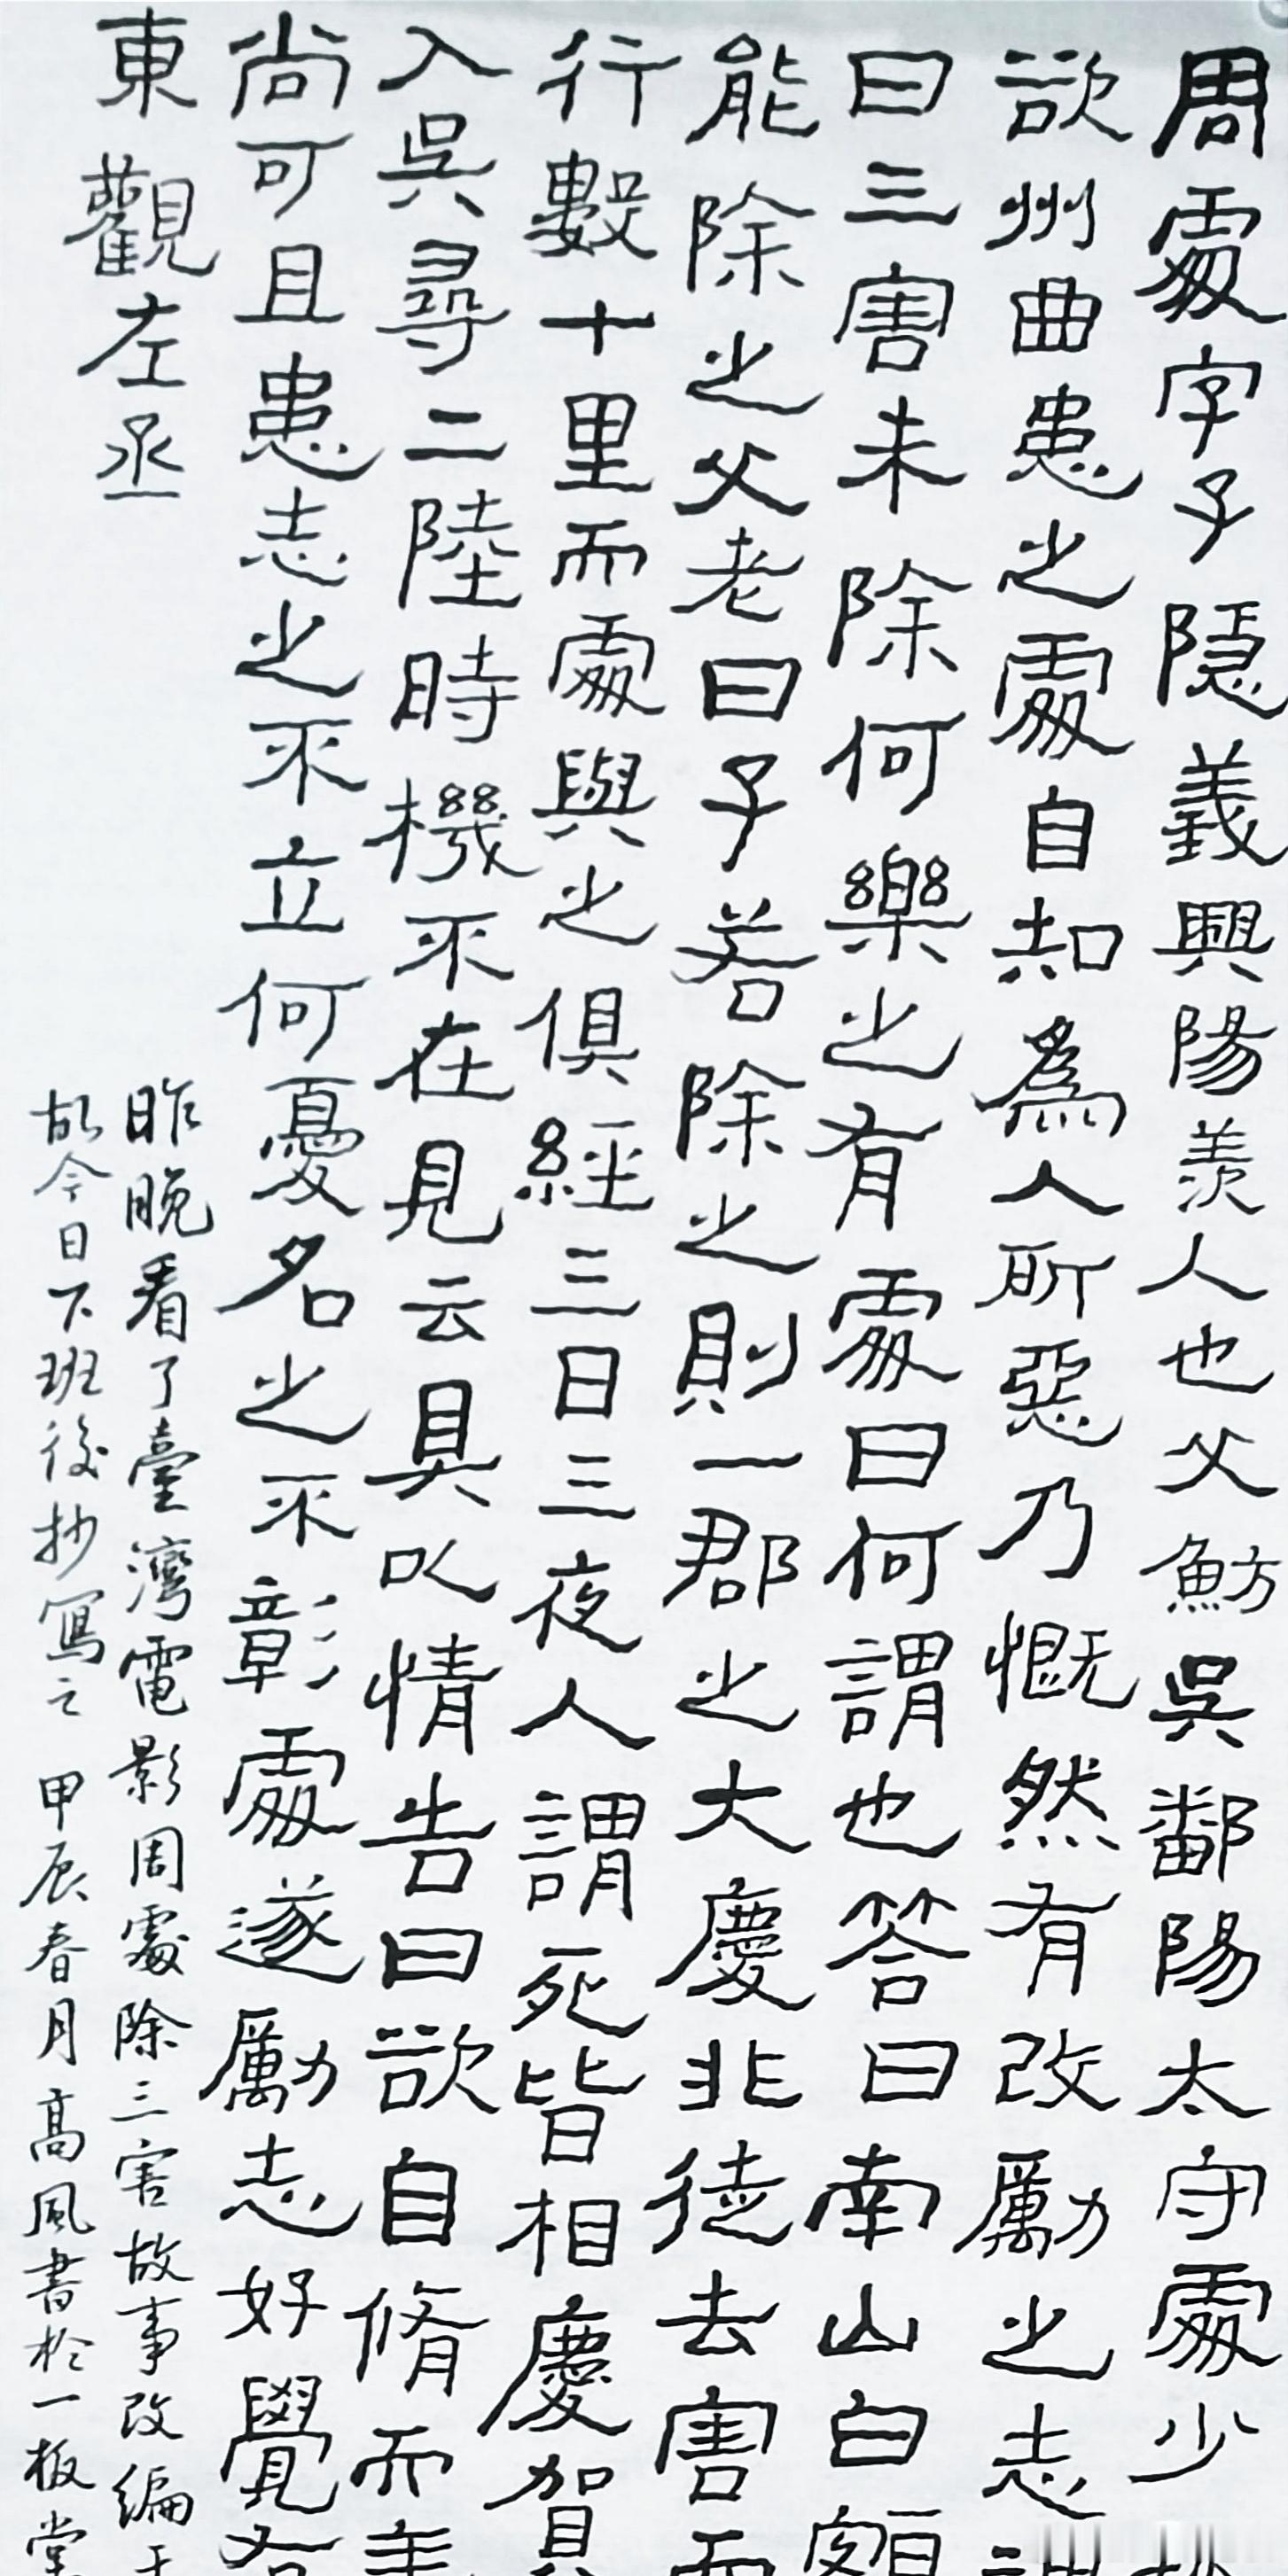 周處字子隱義興陽羨人也父魴吳鄱陽太守處少
欲州曲患之處自知為人所惡乃慨然有改勵之志
曰三害未除何樂之有處曰何謂也答曰南山白額
能除之父老曰子若除之則一郡之大慶非徒去害而
行數十里而處與之俱經三日三夜人謂死皆相慶賀
入吳尋二陸時機不在見云具以情告曰欲自脩而
尚可且患志之不立何憂名之不彰處遂勵志好覺有
東觀左丞
昨晚看了臺灣電影周處除三害故事改編
故今日下班後抄寫之 甲辰春月高風書於一板堂